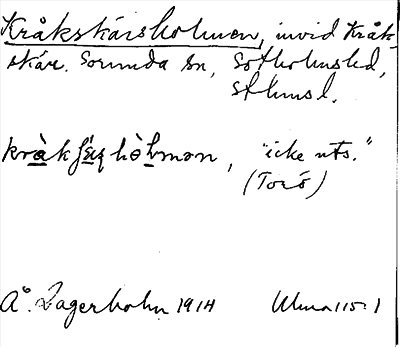 Kråkskärsholmen, invid Kråk-
skär. Sorunda sn, Sotholmshd,
Sthms l.
"icke uts."
(Torö)
Å. Lagerholm 1914 Ulma 115:1